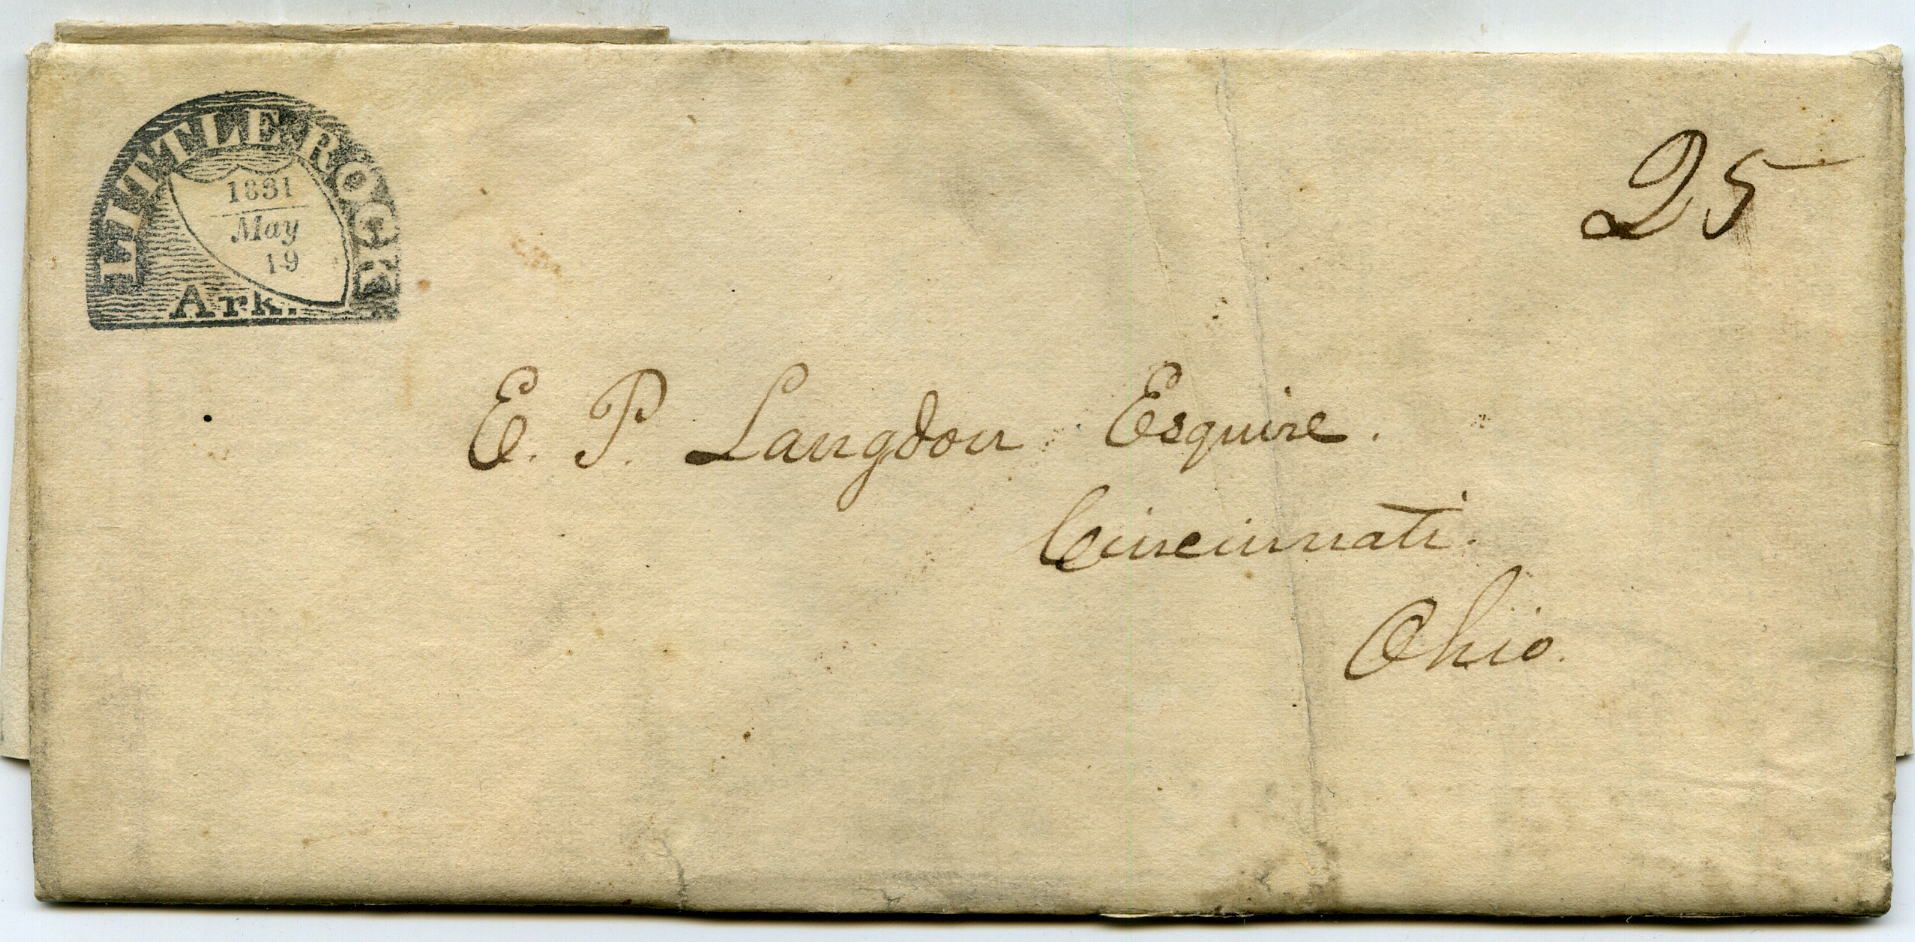 LITTLE ROCK
1831
May
19
Ark.
25
E. P. Langdon Esquire.
Cincinnati.
Ohio.